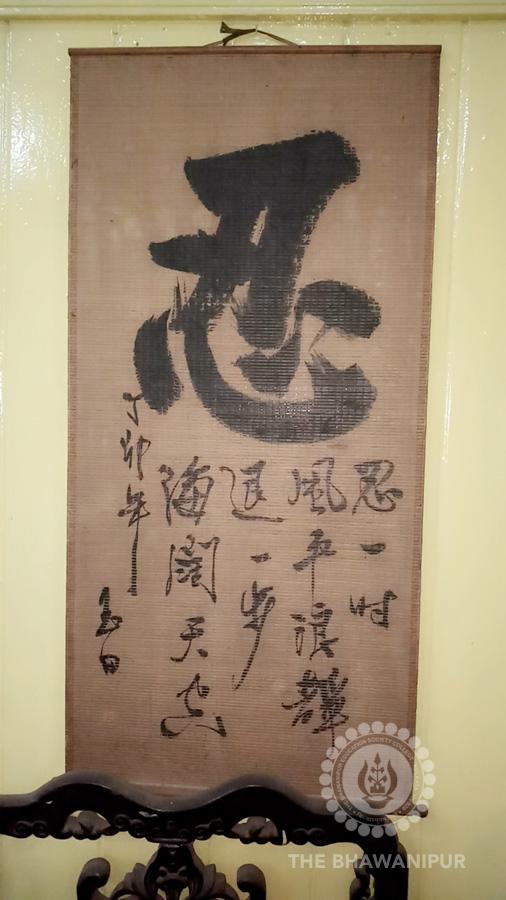 忍
忍一时
風平浪静
退一步
海阔天空
丁卯年
THE BHAWANIPUR